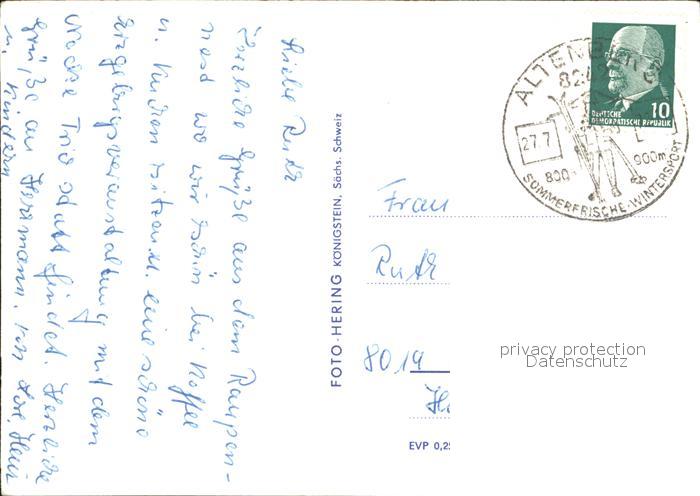 Liebe Ruth
Herzliche Grüße aus dem Raupen-
nest wo wir schön bei Kaffee
u. Kuchen sitzen u. eine schöne
Erzgebirgsveranstaltung mit dem
Trio stattfindet. Herzliche
Grüße an Hermann. von
u. Kindern
FOTO-HERING KÖNIGSTEIN, Sächs. Schweiz
ALTENBERG
824
27.7
800
900m
SOMMERFRISCHE·WINTERSPORT
DEUTSCHE
DEMOKRATISCHE REPUBLIK
10
Frau
Ruth
8019
privacy protection
Datenschutz
EVP 0,2